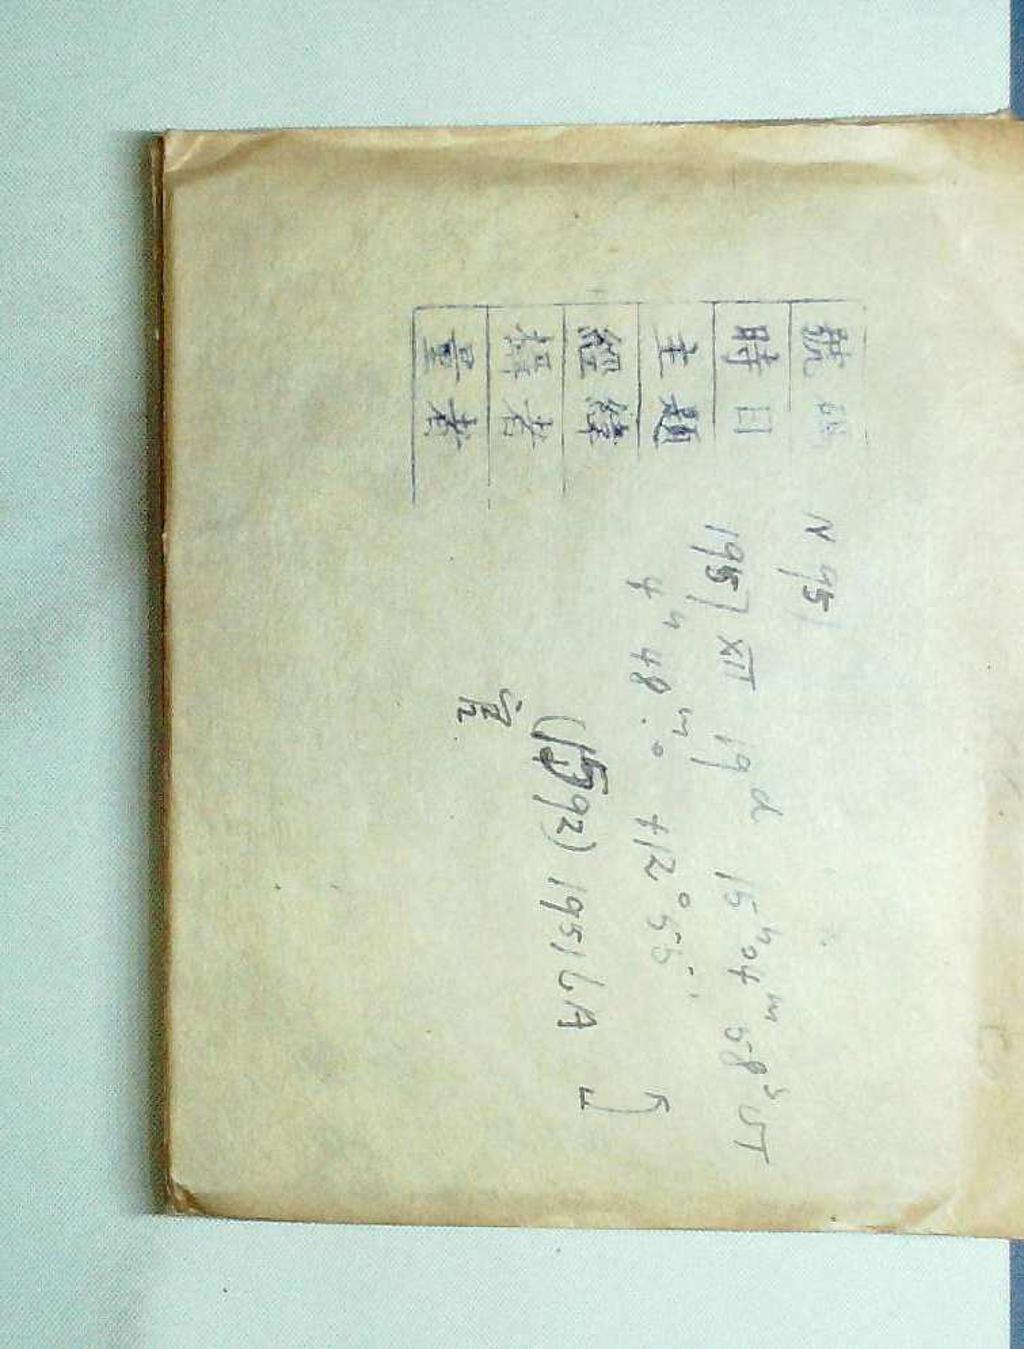 號碼 N 951
時日 1957 XII 19ᵈ 15ʰ04ᵐ58ˢ UT
主題 4ʰ48ᵐ.0 +12°55'
經緯 (1592) 1951 LA
攝者
量者